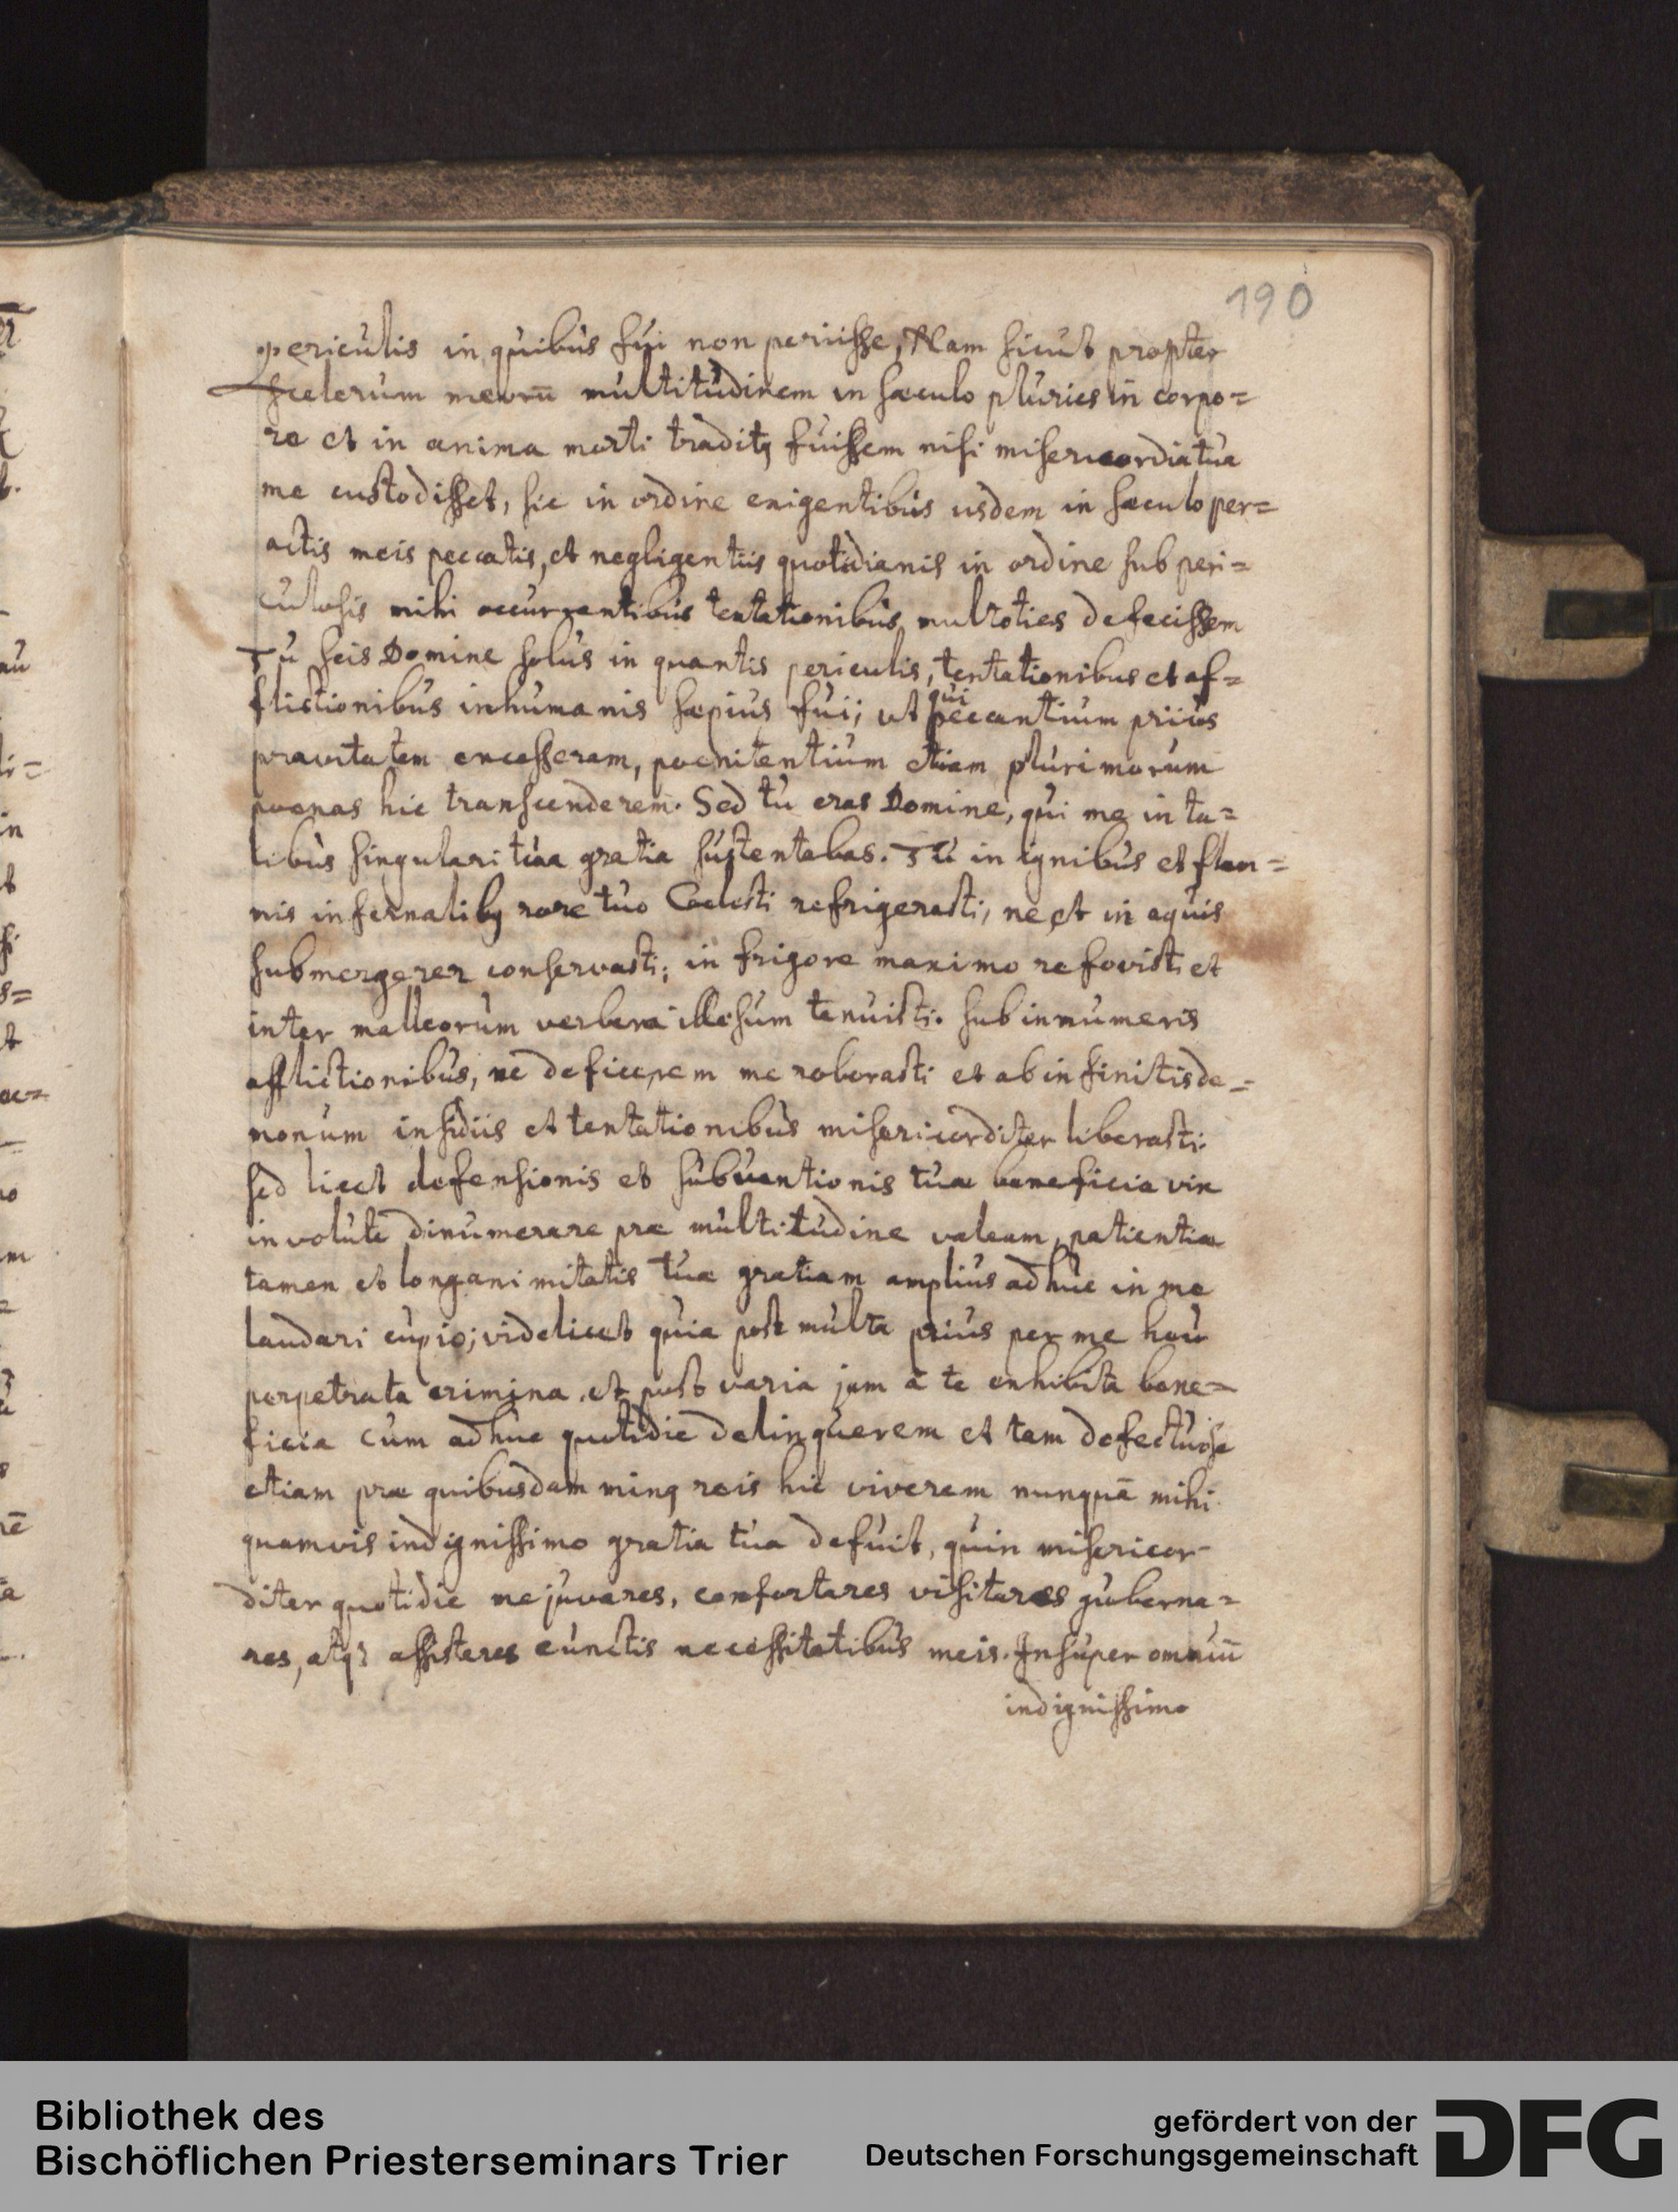 190
periculis in quibus fui non periisse, Nam sicut propter
scelerum meorū multitudinem in sæculo pluries in corpo=
re et in anima morti traditꝯ fuissem nisi misericordia tua
me custodisset, sic in ordine exigentibus iisdem in sæculo per=
actis meis peccatis, et negligentiis quotidianis in ordine sub peri=
culosis mihi occurrentibus tentationibus multoties defecissem
Tu scis Domine solus in quantis periculis, tentationibus et af=
flictionibus inhumanis sæpius fui; ut qui peccantium prius
pravitatem excesseram, poenitentium etiam plurimorum
poenas hic transcenderem. Sed tu eras Domine, qui me in ta=
libus singulari tua gratia sustentabas. Tu in ignibus et flam=
mis infernalibꝯ rore tuo Coelesti refrigerasti, ne et in aquis
submergerer conservasti; in frigore maximo refovisti et
inter malleorum verbera illesum tenuisti. sub innumeris
afflictionibus, ne deficerem me roborasti et ab infinitis de=
monum insidiis et tentationibus misericorditer liberasti.
sed licet defensionis et subventionis tuæ beneficia vix
involute dinumerare præ multitudine valeam, patientiæ
tamen et longanimitatis tuæ gratiam amplius adhuc in me
laudari cupio; videlicet quia post multa prius per me heu
perpetrata crimina, et post varia jam à te exhibita bene=
ficia cum adhuc quotidie delinquerem et tam defectuose
etiam præ quibusdam minꝯ reis hic viverem nunquā mihi
quamvis indignissimo gratia tua defuit, quin misericor-
diter quotidie me juvares, confortares visitares guberna=
res, atqꝫ assisteres cunctis necessitatibus meis. Insuper omniū
indignissimo
Bibliothek des
Bischöflichen Priesterseminars Trier
gefördert von der
Deutschen Forschungsgemeinschaft
DFG